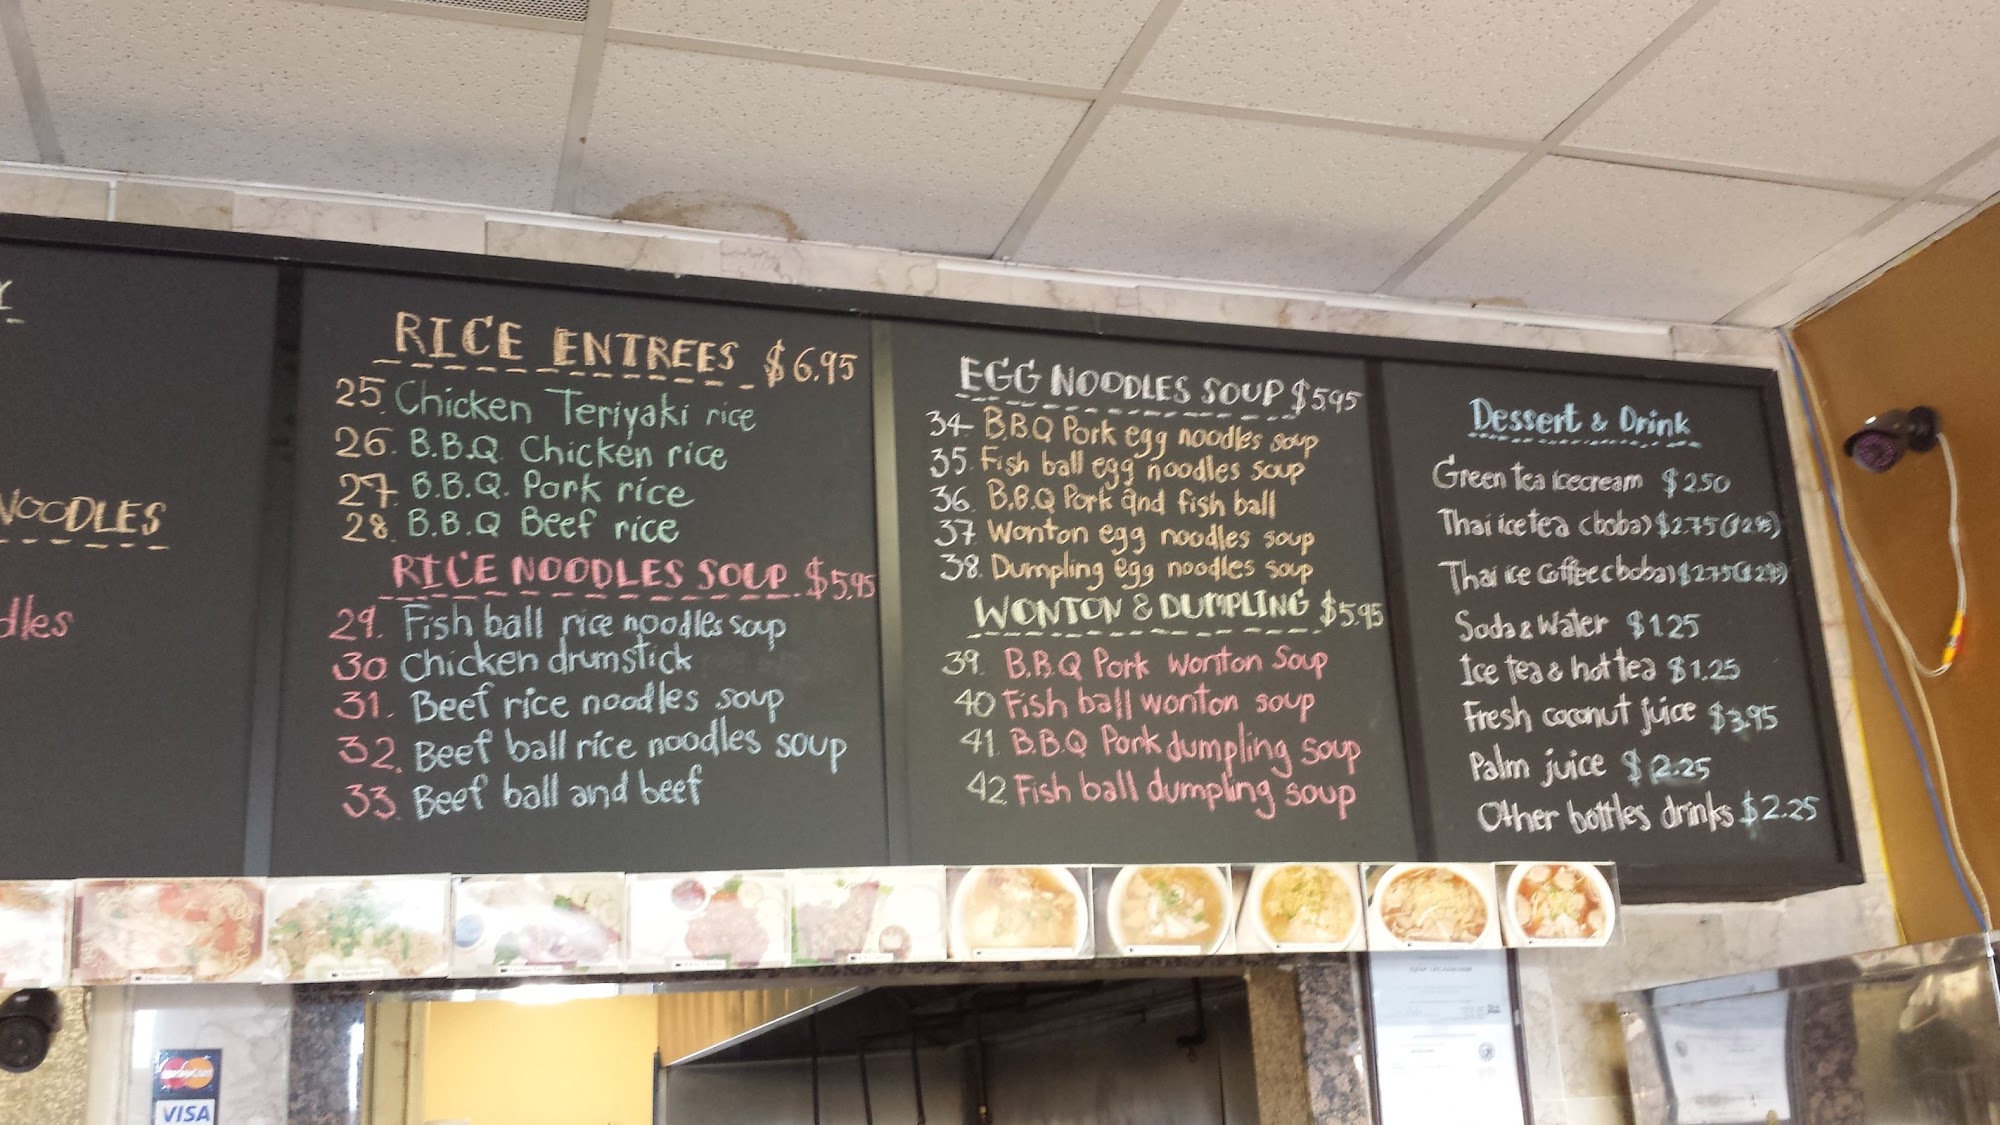 NOODLES
dles
RICE ENTREES $6.95
25. Chicken Teriyaki rice
26. B.B.Q Chicken rice
27. B.B.Q. Pork rice
28. B.B.Q Beef rice
RICE NOODLES SOUP $5.95
29. Fish ball rice noodles soup
30 Chicken drumstick
31. Beef rice noodles soup
32. Beef ball rice noodles soup
33. Beef ball and beef
EGG NOODLES SOUP $5.95
34 B.B.Q Pork egg noodles soup
35. Fish ball egg noodles soup
36. B.B.Q Pork and fish ball
37. Wonton egg noodles soup
38. Dumpling egg noodles soup
WONTON & DUMPLING $5.95
39. B.B.Q Pork Wonton Soup
40 Fish ball wonton soup
41. B.B.Q Pork dumpling soup
42 Fish ball dumpling soup
Dessert & Drink
Green tea icecream $2.50
Thai ice tea (boba) $2.75 ($2.95)
Thai ice Coffee (boba) $2.75 ($2.95)
Soda & Water $1.25
Ice tea & hot tea $1.25
Fresh coconut juice $3.95
Palm juice $2.25
Other bottles drinks $2.25
MasterCard
VISA